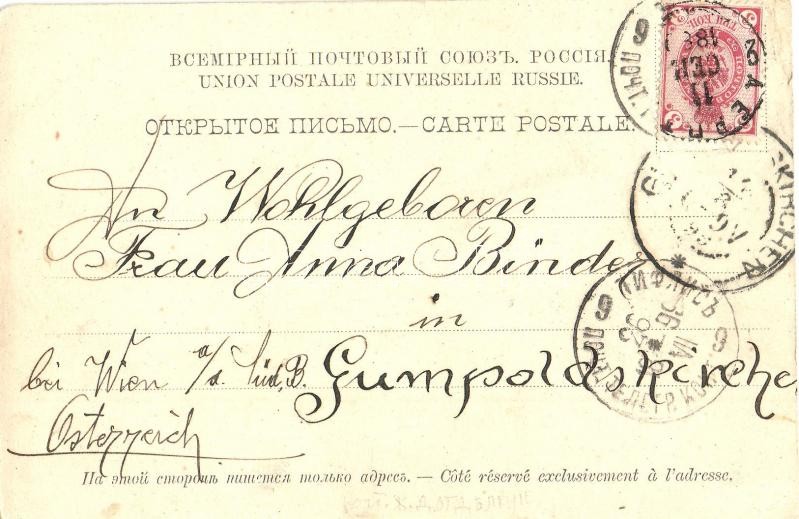 ВСЕМІРНЫЙ ПОЧТОВЫЙ СОЮЗЪ. РОССІЯ.
UNION POSTALE UNIVERSELLE RUSSIE.
ОТКРЫТОЕ ПИСЬМО.—CARTE POSTALE.
3 3
11
СЕН
189
KIRCHEN
ТИФЛИСЪ
An Wohlgeboren
Frau Anna Binder
in
bei Wien a/d. Süd.B. Gumpoldskirche
Österreich
На этой сторонѣ пишется только адресъ. — Côté réservé exclusivement à l'adresse.